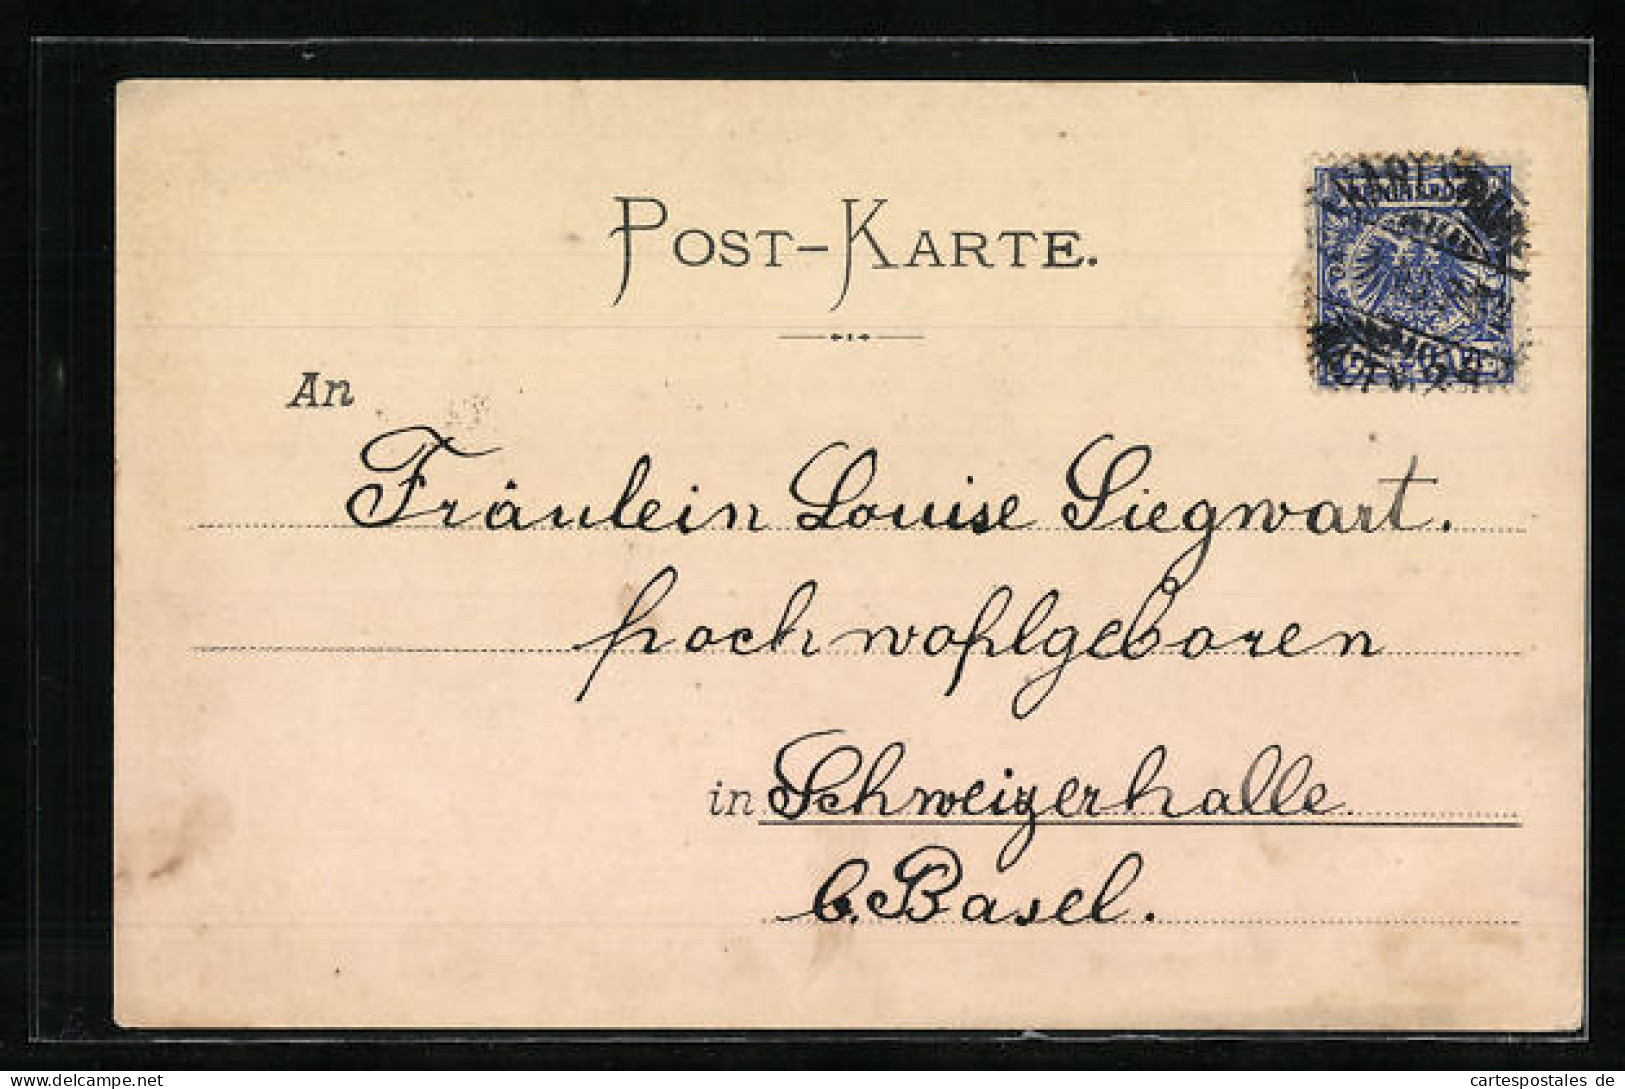 POST-KARTE.
An
Fräulein Louise Siegwart.
hochwohlgeboren
in Schweizerhalle
b. Basel.
cartespostales de